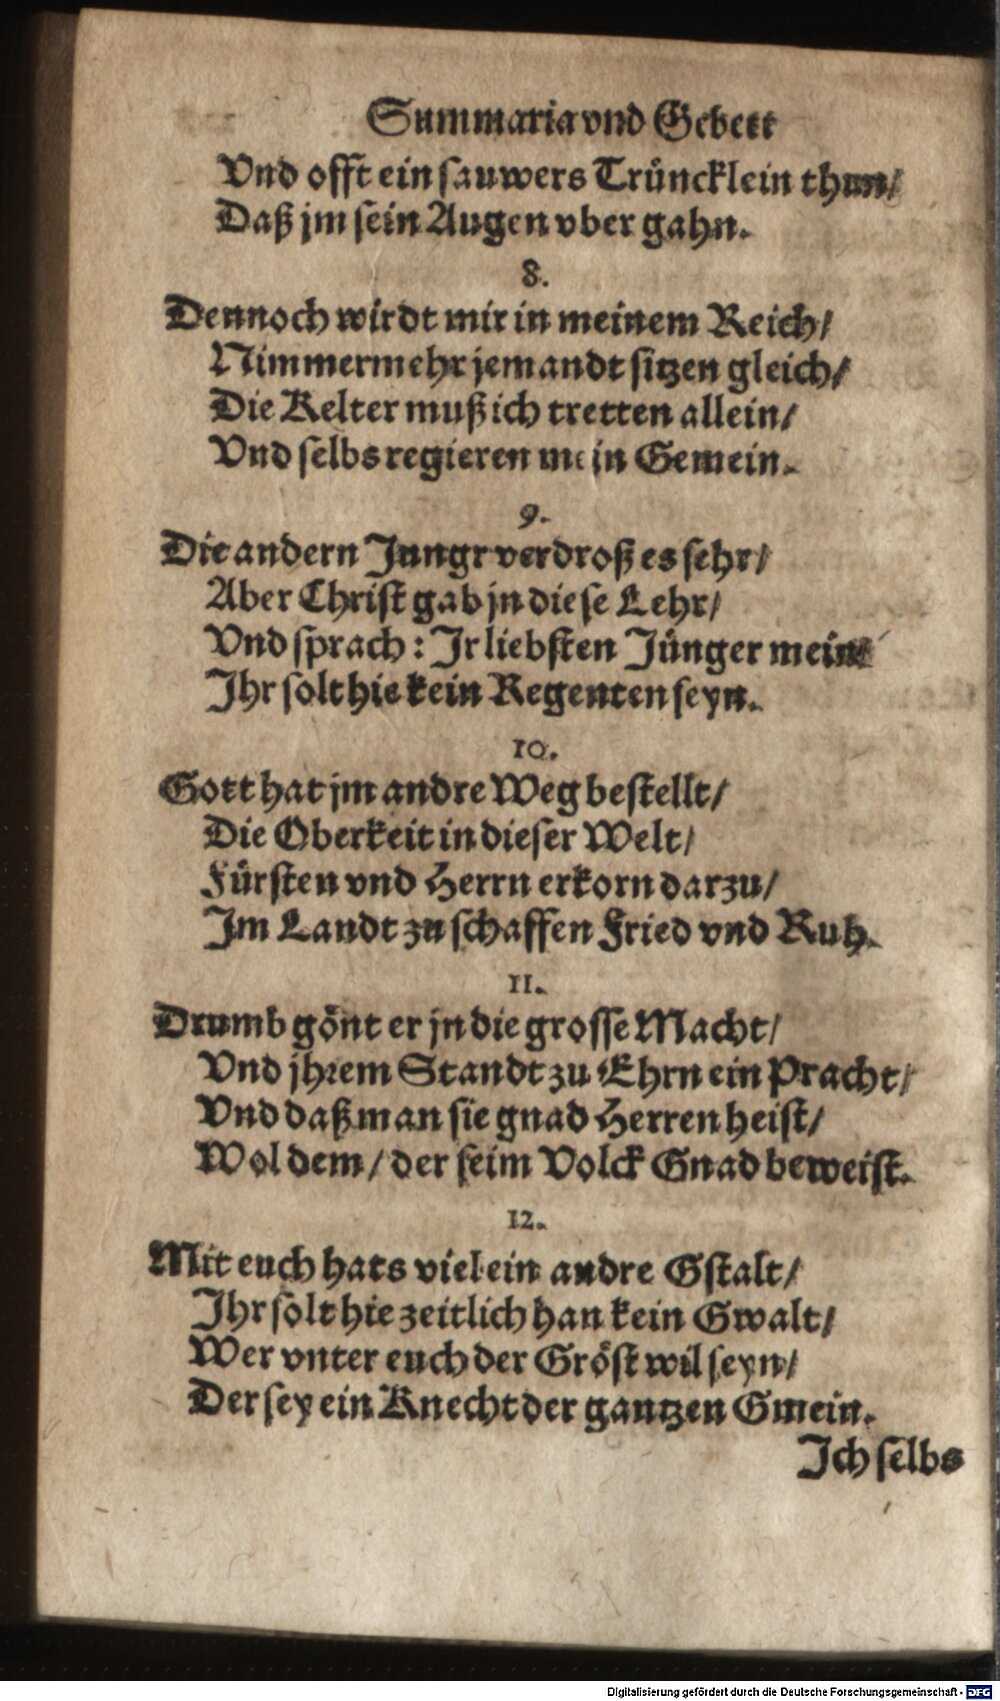 Summaria vnd Gebett
Vnd offt ein sauwers Trüncklein thun/
Daß jm sein Augen vber gahn.
8.
Dennoch wirdt mir in meinem Reich/
Nimmermehr jemandt sitzen gleich/
Die Kelter muß ich tretten allein/
Vnd selbs regieren mein Gemein.
9.
Die andern Jungr verdroß es sehr/
Aber Christ gab jn diese Lehr/
Vnd sprach: Ir liebsten Jünger mein
Ihr solt hie kein Regenten seyn.
10.
Gott hat jm andre Weg bestellt/
Die Oberkeit in dieser Welt/
Fürsten vnd Herrn erkorn darzu/
Im Landt zu schaffen Fried vnd Ruh.
11.
Drumb gönt er jn die grosse Macht/
Vnd jhrem Standt zu Ehrn ein Pracht/
Vnd daß man sie gnad Herren heist/
Wol dem/ der seim Volck Gnad beweist.
12.
Mit euch hats viel ein andre Gstalt/
Ihr solt hie zeitlich han kein Gwalt/
Wer vnter euch der Gröst wil seyn/
Der sey ein Knecht der gantzen Gmein.
Ich selbs
Digitalisierung gefördert durch die Deutsche Forschungsgemeinschaft - DFG